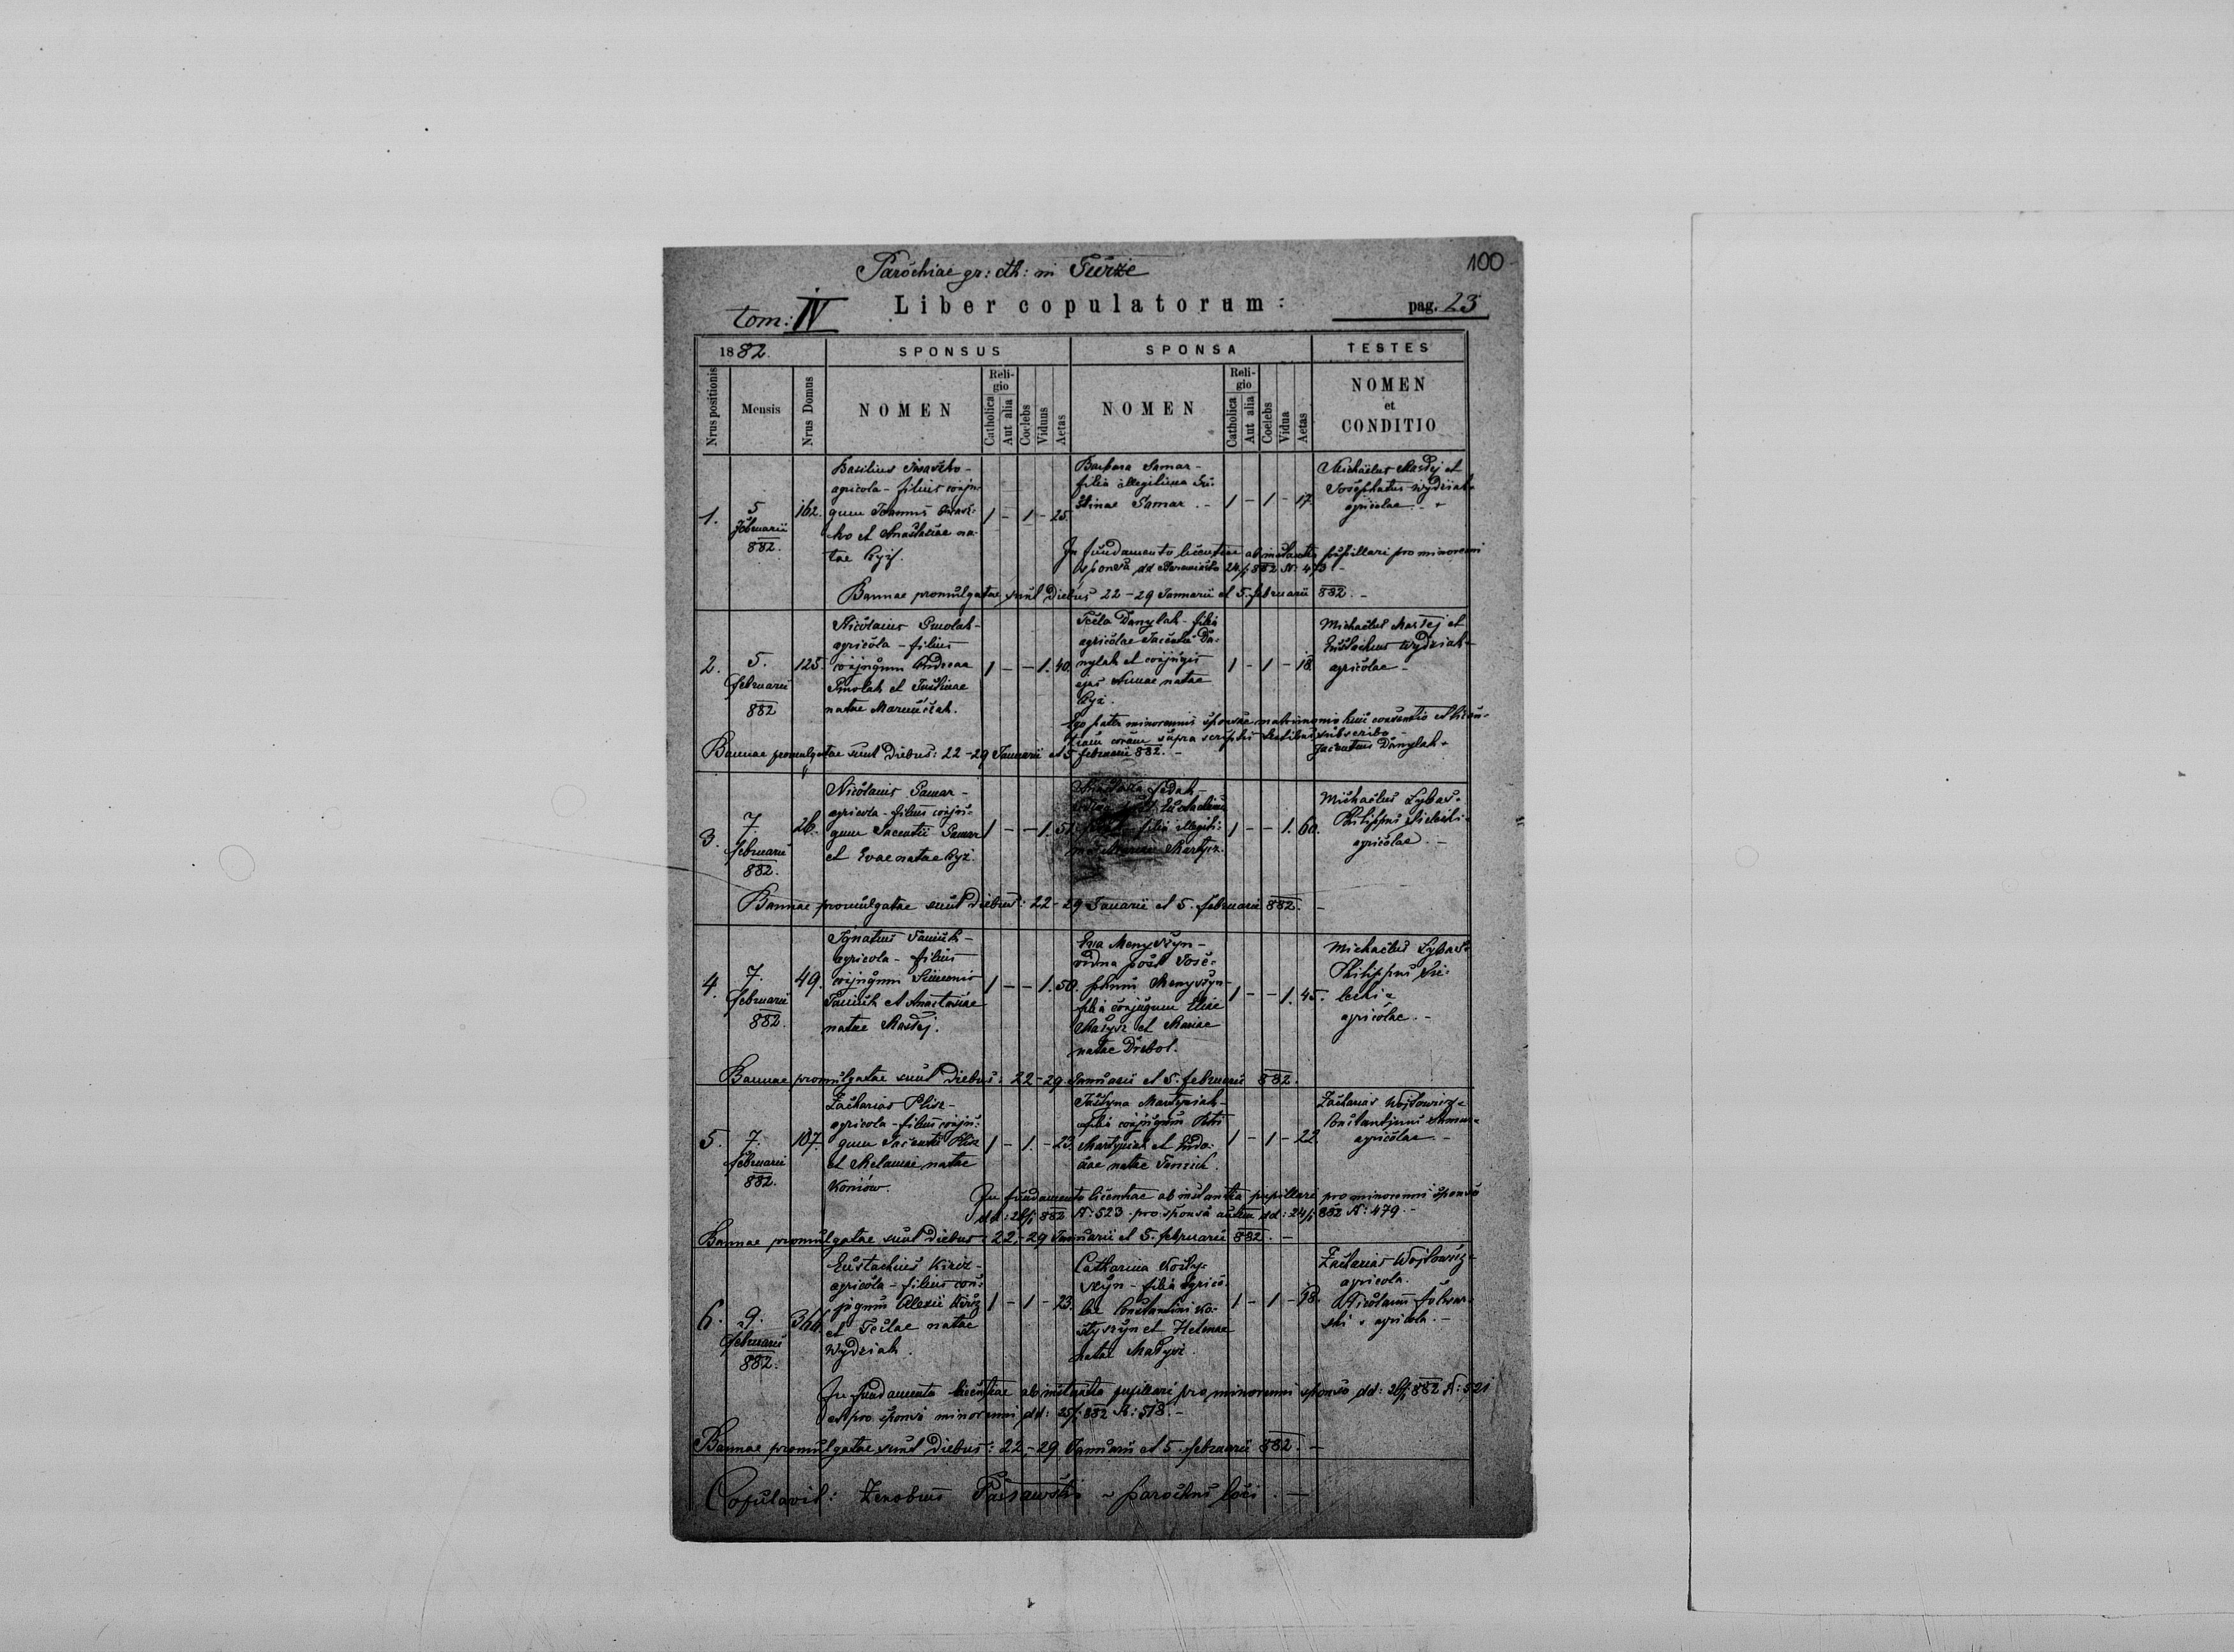 Parochiae gr: cth: in Turze
100
tom: IV
Liber copulatorum:
pag. 23
1882.
SPONSUS
SPONSA
TESTES
Nrus positionis
Mensis
Nrus Domus
NOMEN
Religio
Catholica
Aut alia
Coelebs
Viduus
Aetas
NOMEN
Religio
Catholica
Aut alia
Coelebs
Vidua
Aetas
NOMEN
et
CONDITIO
1.
5
februarii
882.
162.
Basilius
agricola - filius conju-
gum Joannis
ko et Anastasiae na-
tae Ryż.
1 - 1 - 25.
Barbara Samar -
filia illegitima Ju-
stinae Samar. -
1 - 1 - 17.
Michaelus Masdej et
Josephatus Wydziak
agricolae. -
In fundamento licentiae ab instantia pupillari pro minorenni
sponsa dd 24/1 882 N: 473 -
Bannae promulgatae sunt diebus 22 - 29 Januarii et 5. februarii 882. -
2.
5.
februarii
882
125.
Nicolaus Smolak -
agricola - filius
conjugum Andreae
Smolak et Justinae
natae Maruszczak.
1 - - 1. 40.
Tecla Danylak - filia
agricolae Jacentii Da-
nylak et conjugis
ejus Annae natae
Ryż.
1 - 1 - 18.
Michaelus Masdej et
Eustachius Wydziak
agricolae -
Ego pater minorennis sponsae matrimonio huic consentio et licen-
tiam coram supra scriptis testibus subscribo -
Jacentius Danylak +
Bannae promulgatae sunt diebus: 22 - 29 Januarii et 5 februarii 882. -
3.
7.
februarii
882.
26.
Nicolaus Samar -
agricola - filius conju-
gum Jacentii Samar
et Evae natae Ryż.
1 - - 1. 51.
Fedak -
vidua post Eustachium
filia illegiti-
ma Martyn.
1 - - 1. 60.
Michaelus
Philippus
agricolae. -
Bannae promulgatae sunt diebus: 22 - 29 Januarii et 5. februarii 882. -
4.
7.
februarii
882.
49.
Ignatius Panich -
agricola - filius
conjugum Simeonis
Panich et Anastasiae
natae Masdej.
1 - - 1. 50.
Eva Menyszyn -
vidua post Jose-
phum Menyszyn -
filia conjugum Eliae
et Mariae
natae Drebot.
1 - - 1. 45.
Michaelus
Philippus
agricolae. -
Bannae promulgatae sunt diebus: 22 - 29. Januarii et 5. februarii 882.
5.
7.
februarii
882.
107.
Zacharias Plisz -
agricola - filius conju-
gum Jacentii Plisz
et Melaniae natae
Koniów.
1 - 1. - 23.
Justyna Martyniak -
filia conjugum
Martyniak et Eudo-
ciae natae Panich.
1 - 1 - 22.
Zacharias Wojtowicz
Constantinus
agricolae -
In fundamento licentiae ab instantia pupillari pro minorenni sponso
dd: 26/1 882 N: 523. pro sponsa autem dd: 24/1 882 N: 479. -
Bannae promulgatae sunt diebus: 22. - 29 Januarii et 5. februarii 882. -
6.
9.
februarii
882.
366.
Eustachius Kiciz -
agricola - filius con-
jugum Alexii Kiciz
et Teclae natae
Wydziak.
1 - 1 - 23.
Catharina Kosty-
szyn - filia agrico-
lae Constantini Ko-
styszyn et Helenae
natae
1 - 1 - 18.
Zacharias Wojtowicz -
agricola.
Nicolaus Folwar-
ski - agricola. -
In fundamento licentiae ab instantia pupillari pro minorenni sponso dd: 26/1 882 N: 521
et pro sponsa minorenni dd: 25/1 882 N: 518. -
Bannae promulgatae sunt diebus: 22. - 29 Januarii et 5. februarii 882. -
Copulavit: Zenobius - parochus loci. -